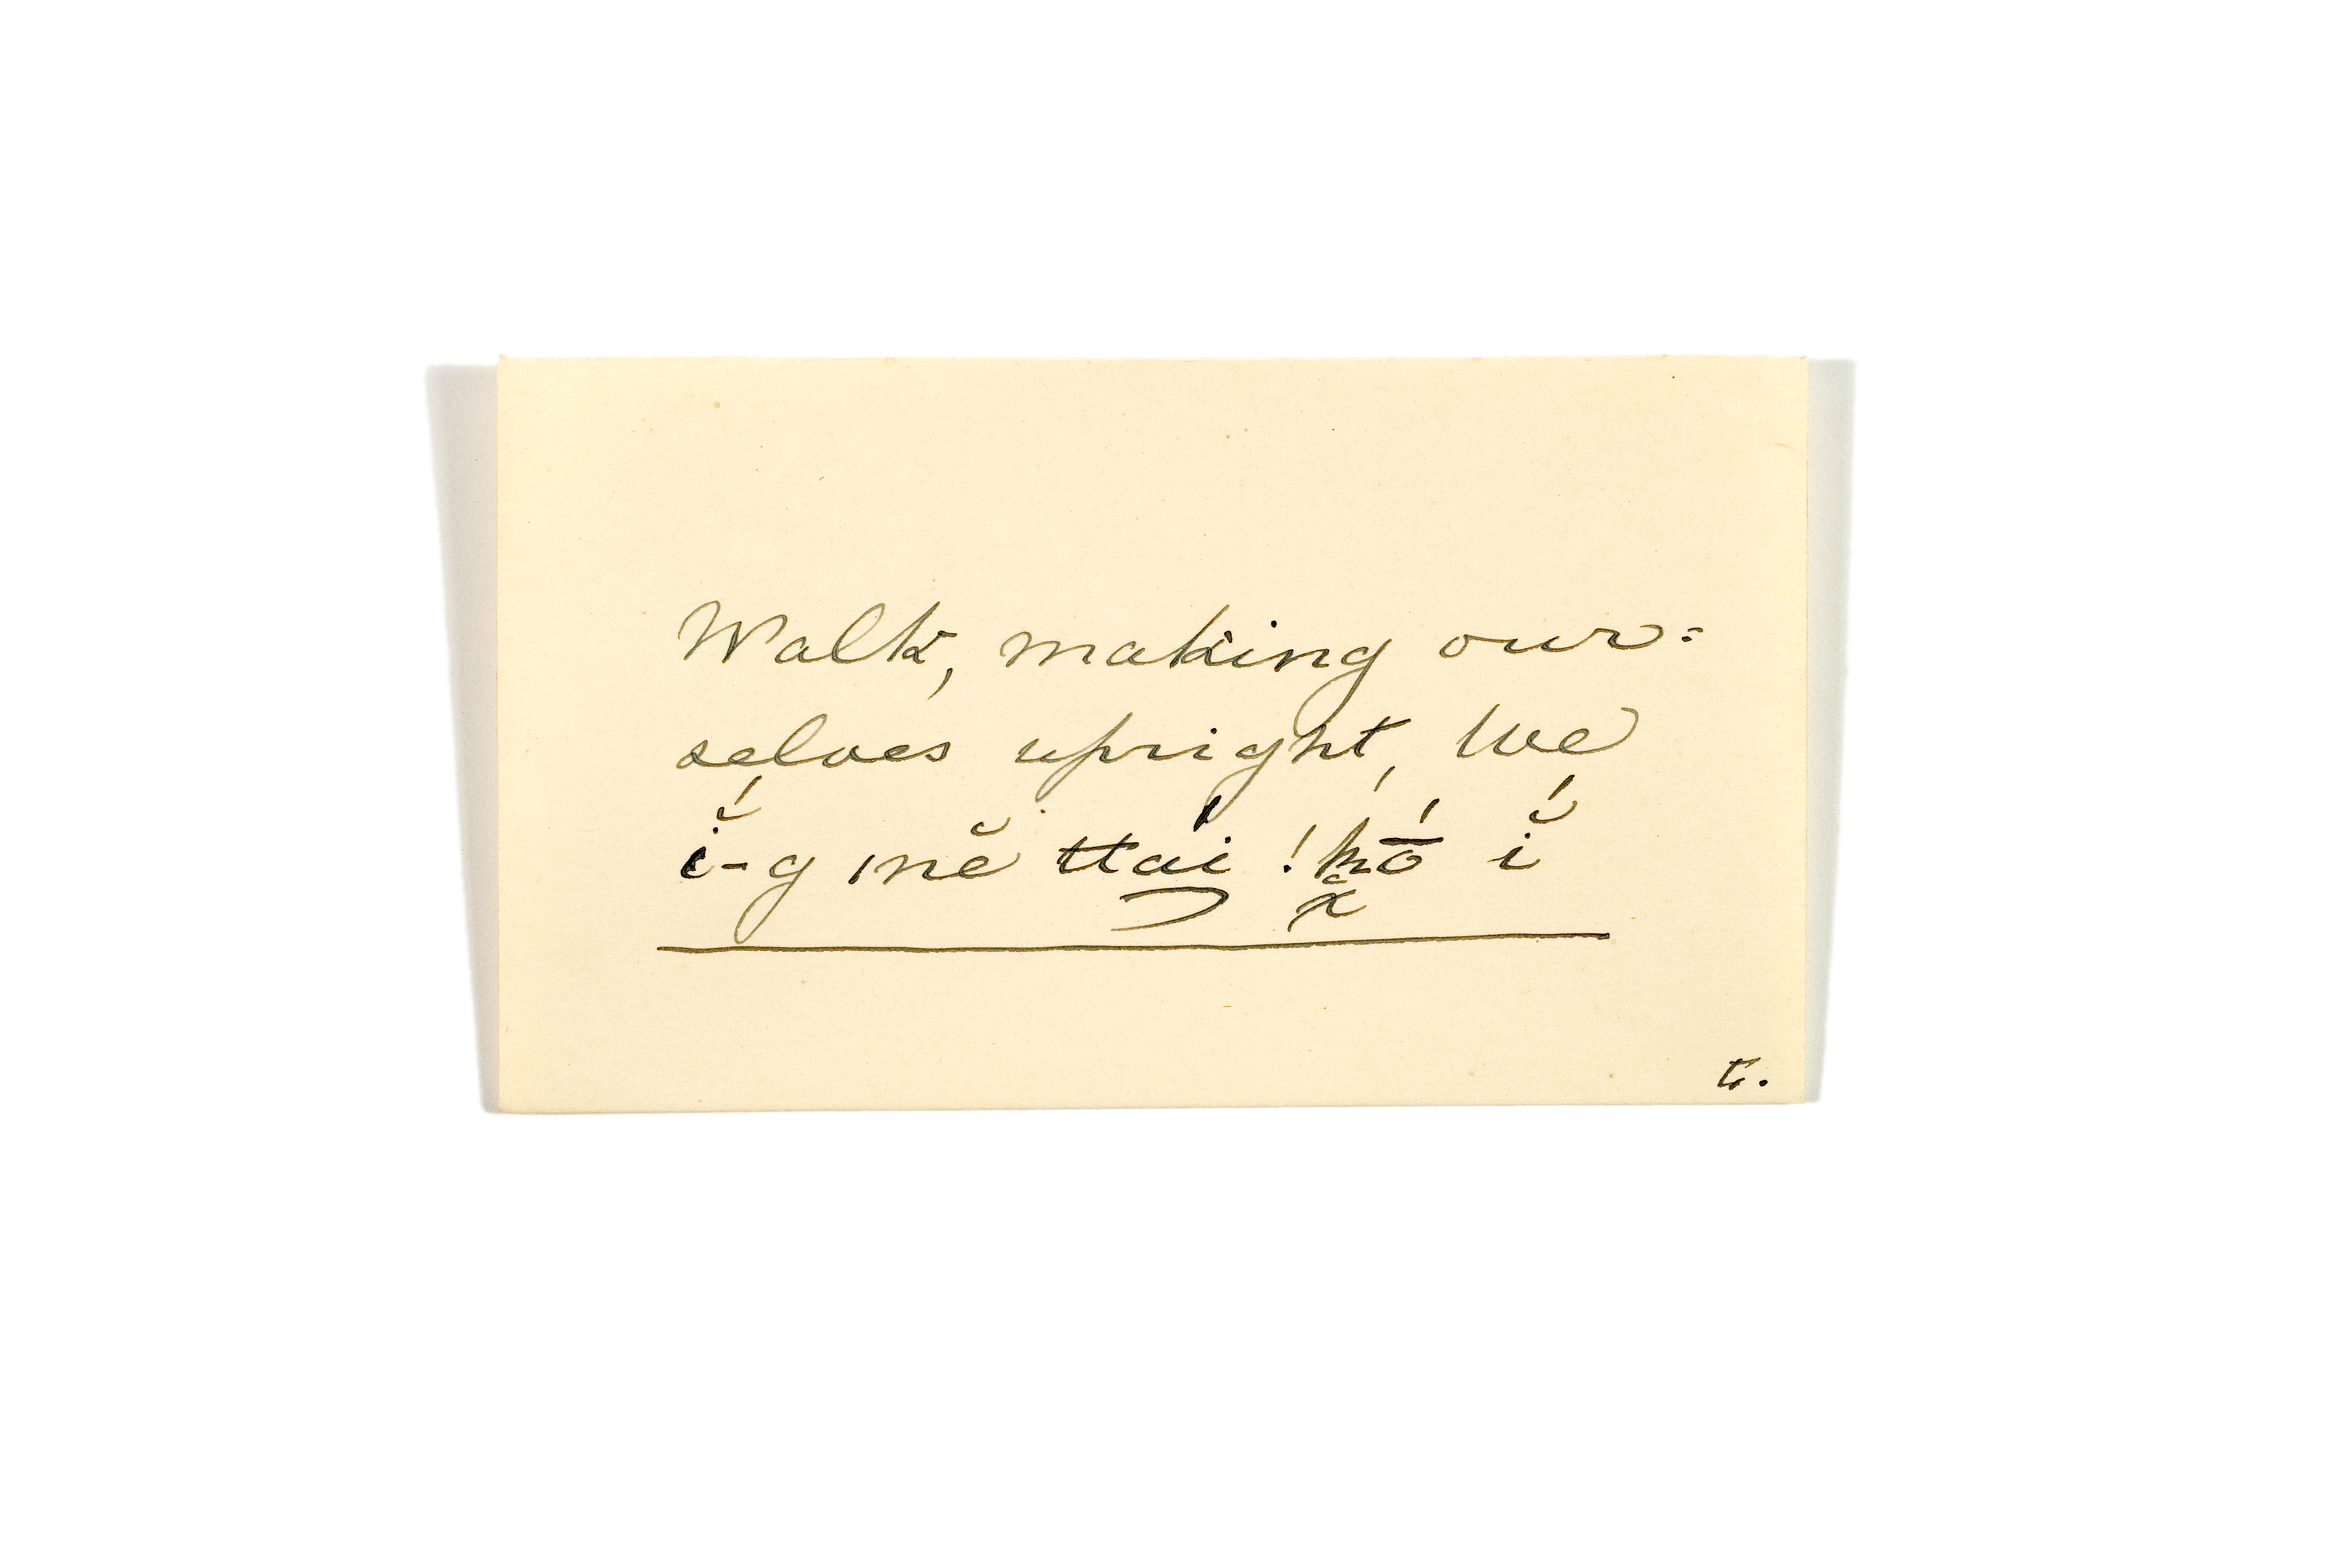 Walk, making our=
selves upright, We
ĭ́-g ıné̆ ttai !kṓ ĭ́
t.